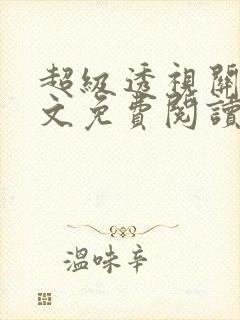 超級透視關
文免費閱讀
溫味辛